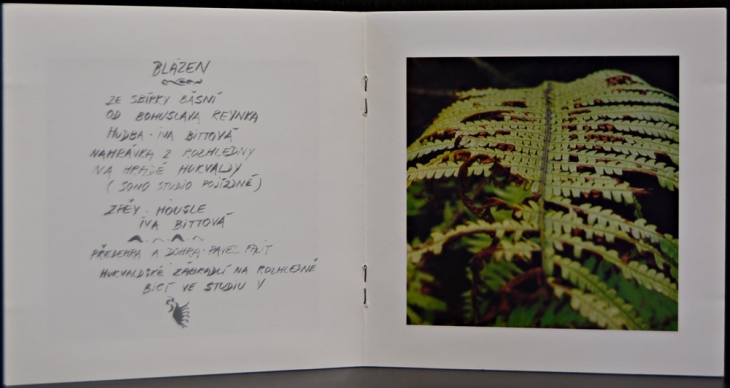 BLÁZEN
ZE SBÍRKY BÁSNÍ
OD BOHUSLAVA REYNKA
HUDBA - IVA BITTOVÁ
NAHRÁVKA Z ROZHLEDNY
NA HRADĚ HUKVALDY
(SONO STUDIO POJÍZDNÉ)
ZPĚV - HOUSLE
IVA BITTOVÁ
PŘEDEHRA A DOHRA - PAVEL FAJT
HUKVALDSKÉ ZÁBRADLÍ NA ROZHLEDNĚ
BICÍ VE STUDIU V